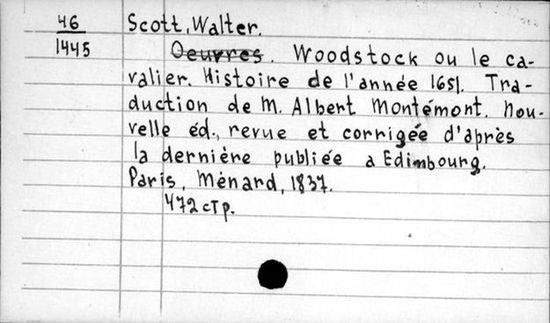 46
1445
Scott, Walter.
Oeuvres. Woodstock ou le ca-
valier. Histoire de l'année 1651. Tra-
duction de M. Albert Montémont. Nou-
velle éd., revue et corrigée d'après
la dernière publiée a Edimbourg.
Paris, Ménard, 1837.
472 стр.